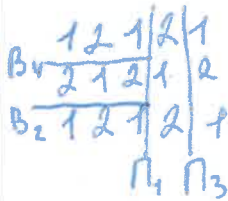 1 2 1 2 1
B₁
2 1 2 1 2
B₂ 1 2 1 2 1
П₁ П₃